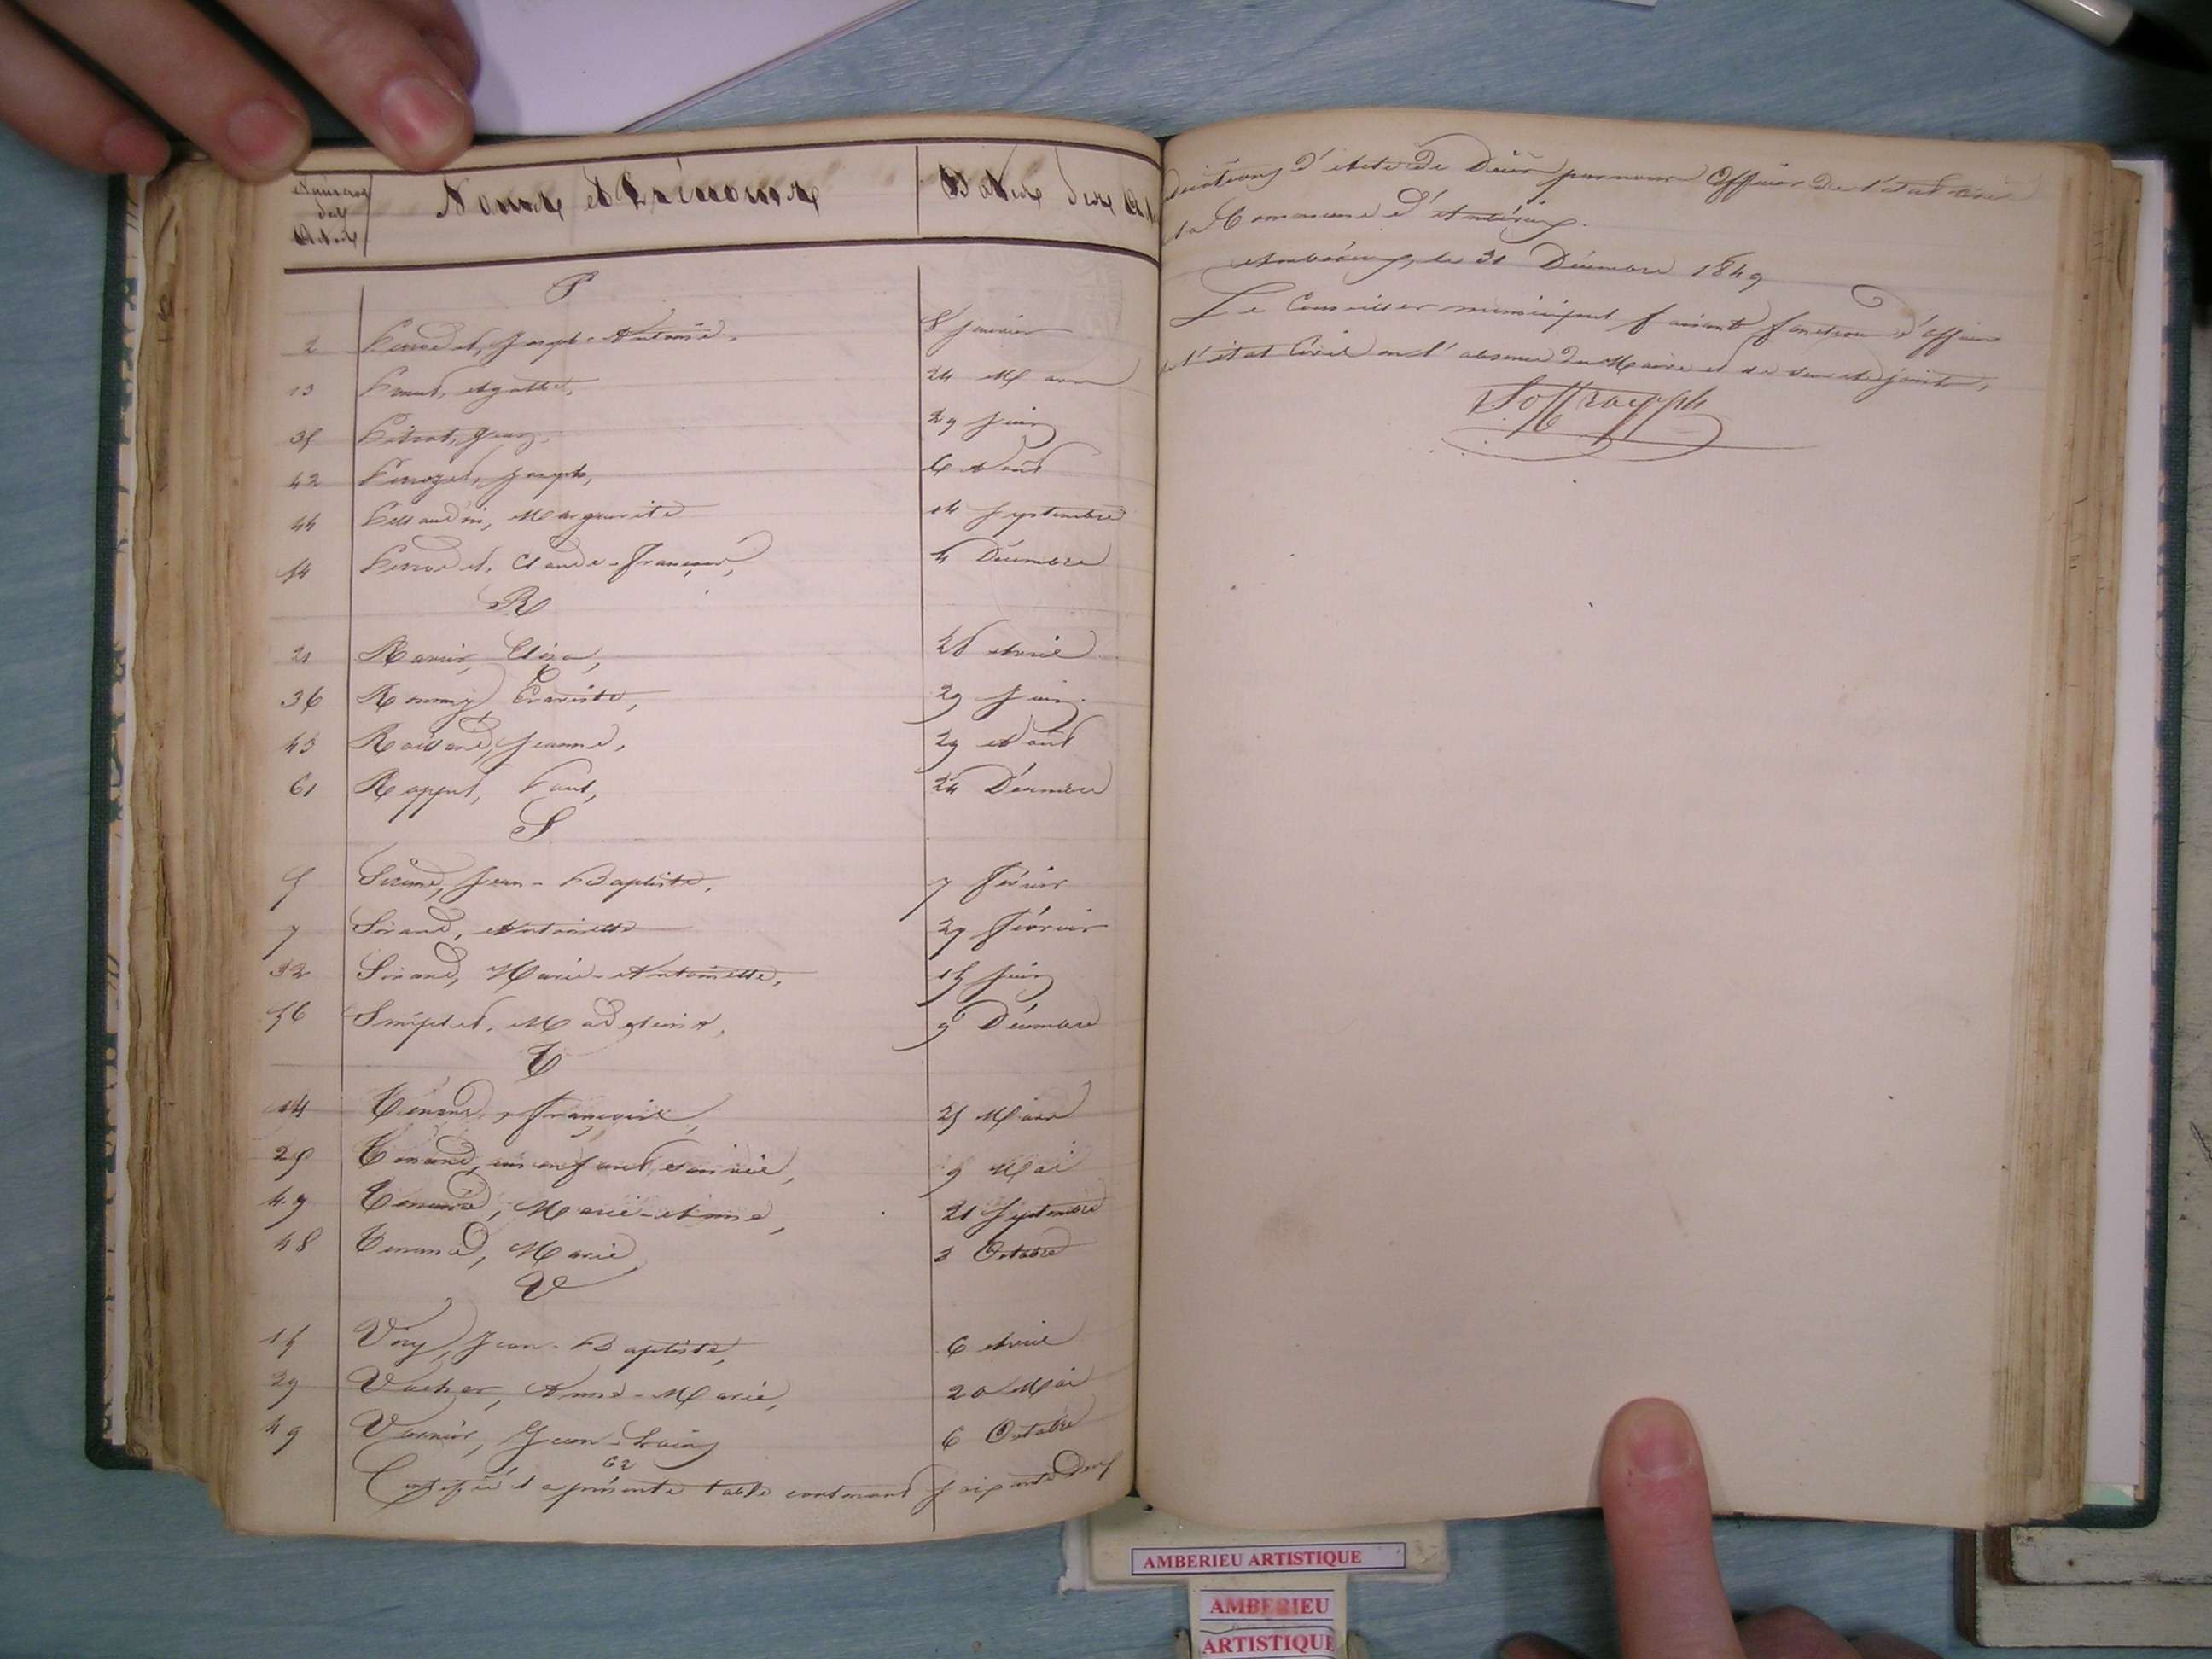 Numéros des Actes
Noms et Prénoms
Dates des
P
2 Perrodet, Joseph-Antoine, 8 Janvier
13 Agathe, 24 Mars
35 29 Juin
42 Perrozet, Joseph, 6 Août
44 Marguerite 14 Septembre
54 Perrodet, Claude-François, 4 Décembre
R
21 Ravier, Eliza, 28 Avril
36 Rommy, Evariste, 29 Juin
43 Jeanne, 29 Août
61 Rappet, Paul, 24 Décembre
S
5 Jean-Baptiste, 7 Février
7 Sirand, Antoinette 27 Février
32 Sirand, Marie-Antoinette, 15 Juin
56 Madeleine, 9 Décembre
T
14 Tenand, Françoise, 25 Mars
25 Tenand, un enfant sans vie, 9 Mai
47 Tenand, Marie-Anne, 21 Septembre
48 Tenand, Marie, 3 Octobre
V
15 Jean-Baptiste, 6 Avril
29 Vacher, Anne-Marie, 20 Mai
49 Jean-Louis 6 Octobre
62
Certifié la présente table contenant soixante deux
d'Acte de Décès par nous Officier de l'état civil
Commune d'Ambérieu.
Ambérieux, le 31 Décembre 1849
Le Conseiller municipal faisant fonction d'officier
l'état Civil en l'absence du Maire et de son adjoint,
AMBERIEU ARTISTIQUE
AMBERIEU
ARTISTIQUE